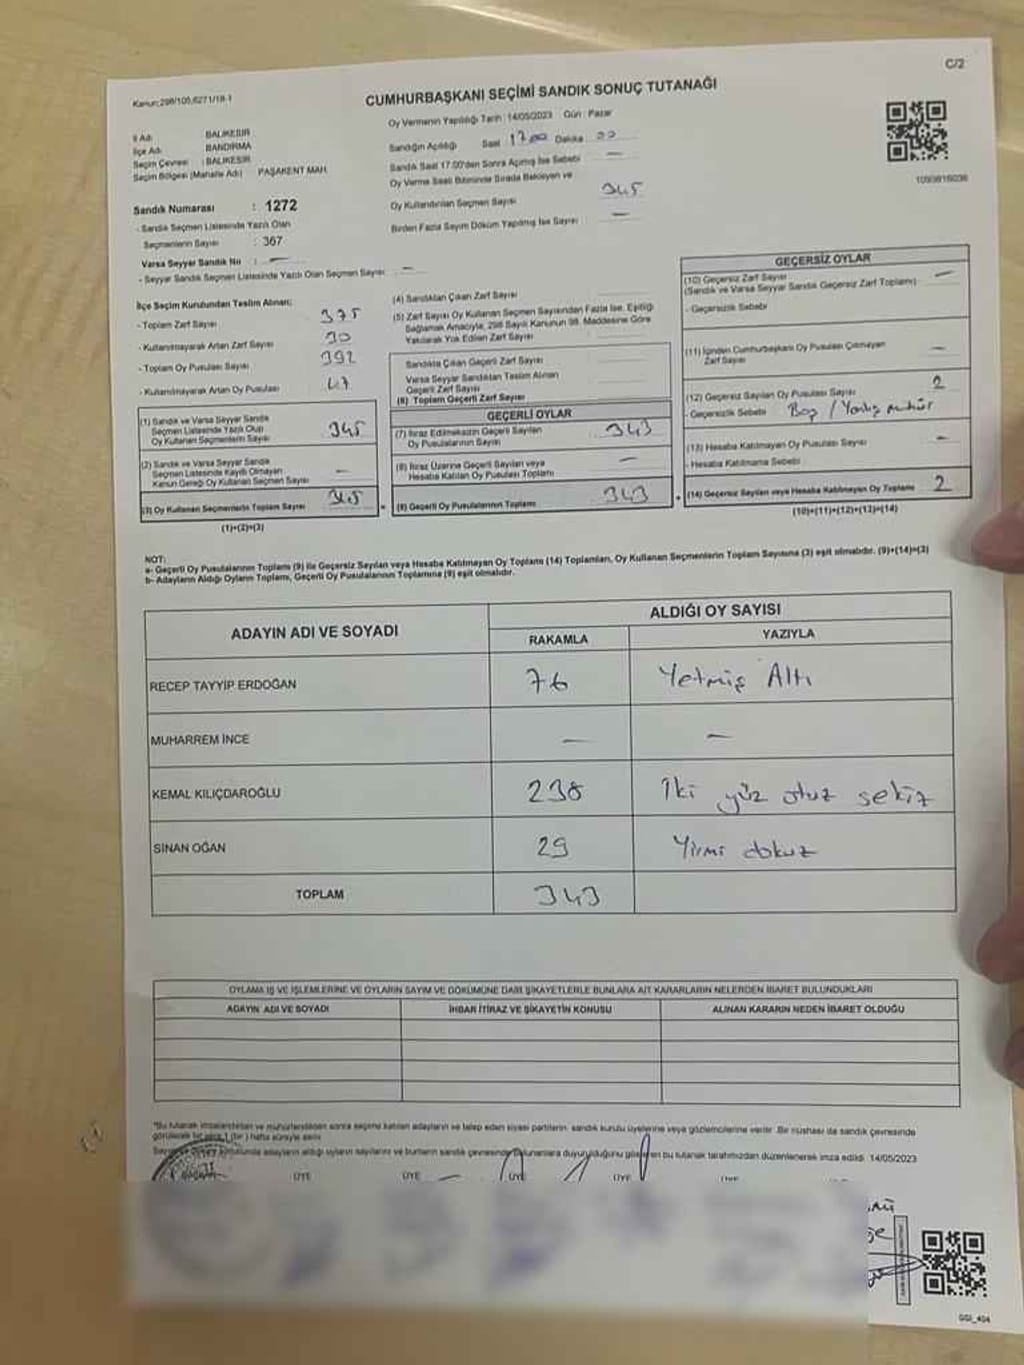 C/2
Kanun:298/105,6271/18-1
CUMHURBAŞKANI SEÇİMİ SANDIK SONUÇ TUTANAĞI
İl Adı : BALIKESİR
İlçe Adı : BANDIRMA
Seçim Çevresi : BALIKESİR
Seçim Bölgesi (Mahalle Adı) PAŞAKENT MAH.
Sandık Numarası : 1272
- Sandık Seçmen Listesinde Yazılı Olan
Seçmenlerin Sayısı : 367
Varsa Seyyar Sandık No : —
- Seyyar Sandık Seçmen Listesinde Yazılı Olan Seçmen Sayısı —
Oy Vermenin Yapıldığı Tarih : 14/05/2023 Gün : Pazar
Sandığın Açıldığı Saat 17.00 Dakika 00
Sandık Saat 17.00'den Sonra Açılmış İse Sebebi —
Oy Verme Saati Bitiminde Sırada Bekleyen ve
Oy Kullandırılan Seçmen Sayısı 345
Birden Fazla Sayım Döküm Yapılmış İse Sayısı —
1090816036
İlçe Seçim Kurulundan Teslim Alınan;
- Toplam Zarf Sayısı 375
- Kullanılmayarak Artan Zarf Sayısı 30
- Toplam Oy Pusulası Sayısı 392
- Kullanılmayarak Artan Oy Pusulası 47
(1) Sandık ve Varsa Seyyar Sandık
Seçmen Listesinde Yazılı Olup
Oy Kullanan Seçmenlerin Sayısı 345
(2) Sandık ve Varsa Seyyar Sandık
Seçmen Listesinde Kayıtlı Olmayan
Kanun Gereği Oy Kullanan Seçmen Sayısı —
(3) Oy Kullanan Seçmenlerin Toplam Sayısı 345
(1)+(2)=(3)
(4) Sandıktan Çıkan Zarf Sayısı
(5) Zarf Sayısı Oy Kullanan Seçmen Sayısından Fazla İse, Eşitliği
Sağlamak Amacıyla, 298 Sayılı Kanunun 98. Maddesine Göre
Yakılarak Yok Edilen Zarf Sayısı
Sandıkta Çıkan Geçerli Zarf Sayısı
Varsa Seyyar Sandıktan Teslim Alınan
Geçerli Zarf Sayısı
(6) Toplam Geçerli Zarf Sayısı
GEÇERLİ OYLAR
(7) İtiraz Edilmeksizin Geçerli Sayılan
Oy Pusulalarının Sayısı 343
(8) İtiraz Üzerine Geçerli Sayılan veya
Hesaba Katılan Oy Pusulası Toplamı —
(9) Geçerli Oy Pusulalarının Toplamı 343
GEÇERSİZ OYLAR
(10) Geçersiz Zarf Sayısı —
(Sandık ve Varsa Seyyar Sandık Geçersiz Zarf Toplamı)
- Geçersizlik Sebebi
(11) İçinden Cumhurbaşkanı Oy Pusulası Çıkmayan
Zarf Sayısı —
(12) Geçersiz Sayılan Oy Pusulası Sayısı 2
- Geçersizlik Sebebi Boş / Yanlış mühür
(13) Hesaba Katılmayan Oy Pusulası Sayısı —
- Hesaba Katılmama Sebebi
(14) Geçersiz Sayılan veya Hesaba Katılmayan Oy Toplamı 2
(10)+(11)+(12)+(13)=(14)
NOT:
a- Geçerli Oy Pusulalarının Toplamı (9) ile Geçersiz Sayılan veya Hesaba Katılmayan Oy Toplamı (14) Toplamları, Oy Kullanan Seçmenlerin Toplam Sayısına (3) eşit olmalıdır. (9)+(14)=(3)
b- Adayların Aldığı Oyların Toplamı, Geçerli Oy Pusulalarının Toplamına (9) eşit olmalıdır.
ADAYIN ADI VE SOYADI
ALDIĞI OY SAYISI
RAKAMLA YAZIYLA
RECEP TAYYİP ERDOĞAN 76 Yetmiş Altı
MUHARREM İNCE — —
KEMAL KILIÇDAROĞLU 238 İki yüz otuz sekiz
SİNAN OĞAN 29 Yirmi dokuz
TOPLAM 343
OYLAMA İŞ VE İŞLEMLERİNE VE OYLARIN SAYIM VE DÖKÜMÜNE DAİR ŞİKAYETLERLE BUNLARA AİT KARARLARIN NELERDEN İBARET BULUNDUKLARI
ADAYIN ADI VE SOYADI İHBAR İTİRAZ VE ŞİKAYETİN KONUSU ALINAN KARARIN NEDEN İBARET OLDUĞU
*Bu tutanak imzalandıktan ve mühürlendikten sonra seçime katılan adayların ve talep eden siyasi partilerin, sandık kurulu üyelerine veya gözlemcilerine verilir. Bir nüshası da sandık çevresinde
görülecek bir yere 1 (bir) hafta süreyle asılır.
14/05/2023
BAŞKAN ÜYE ÜYE ÜYE ÜYE
GGI_404